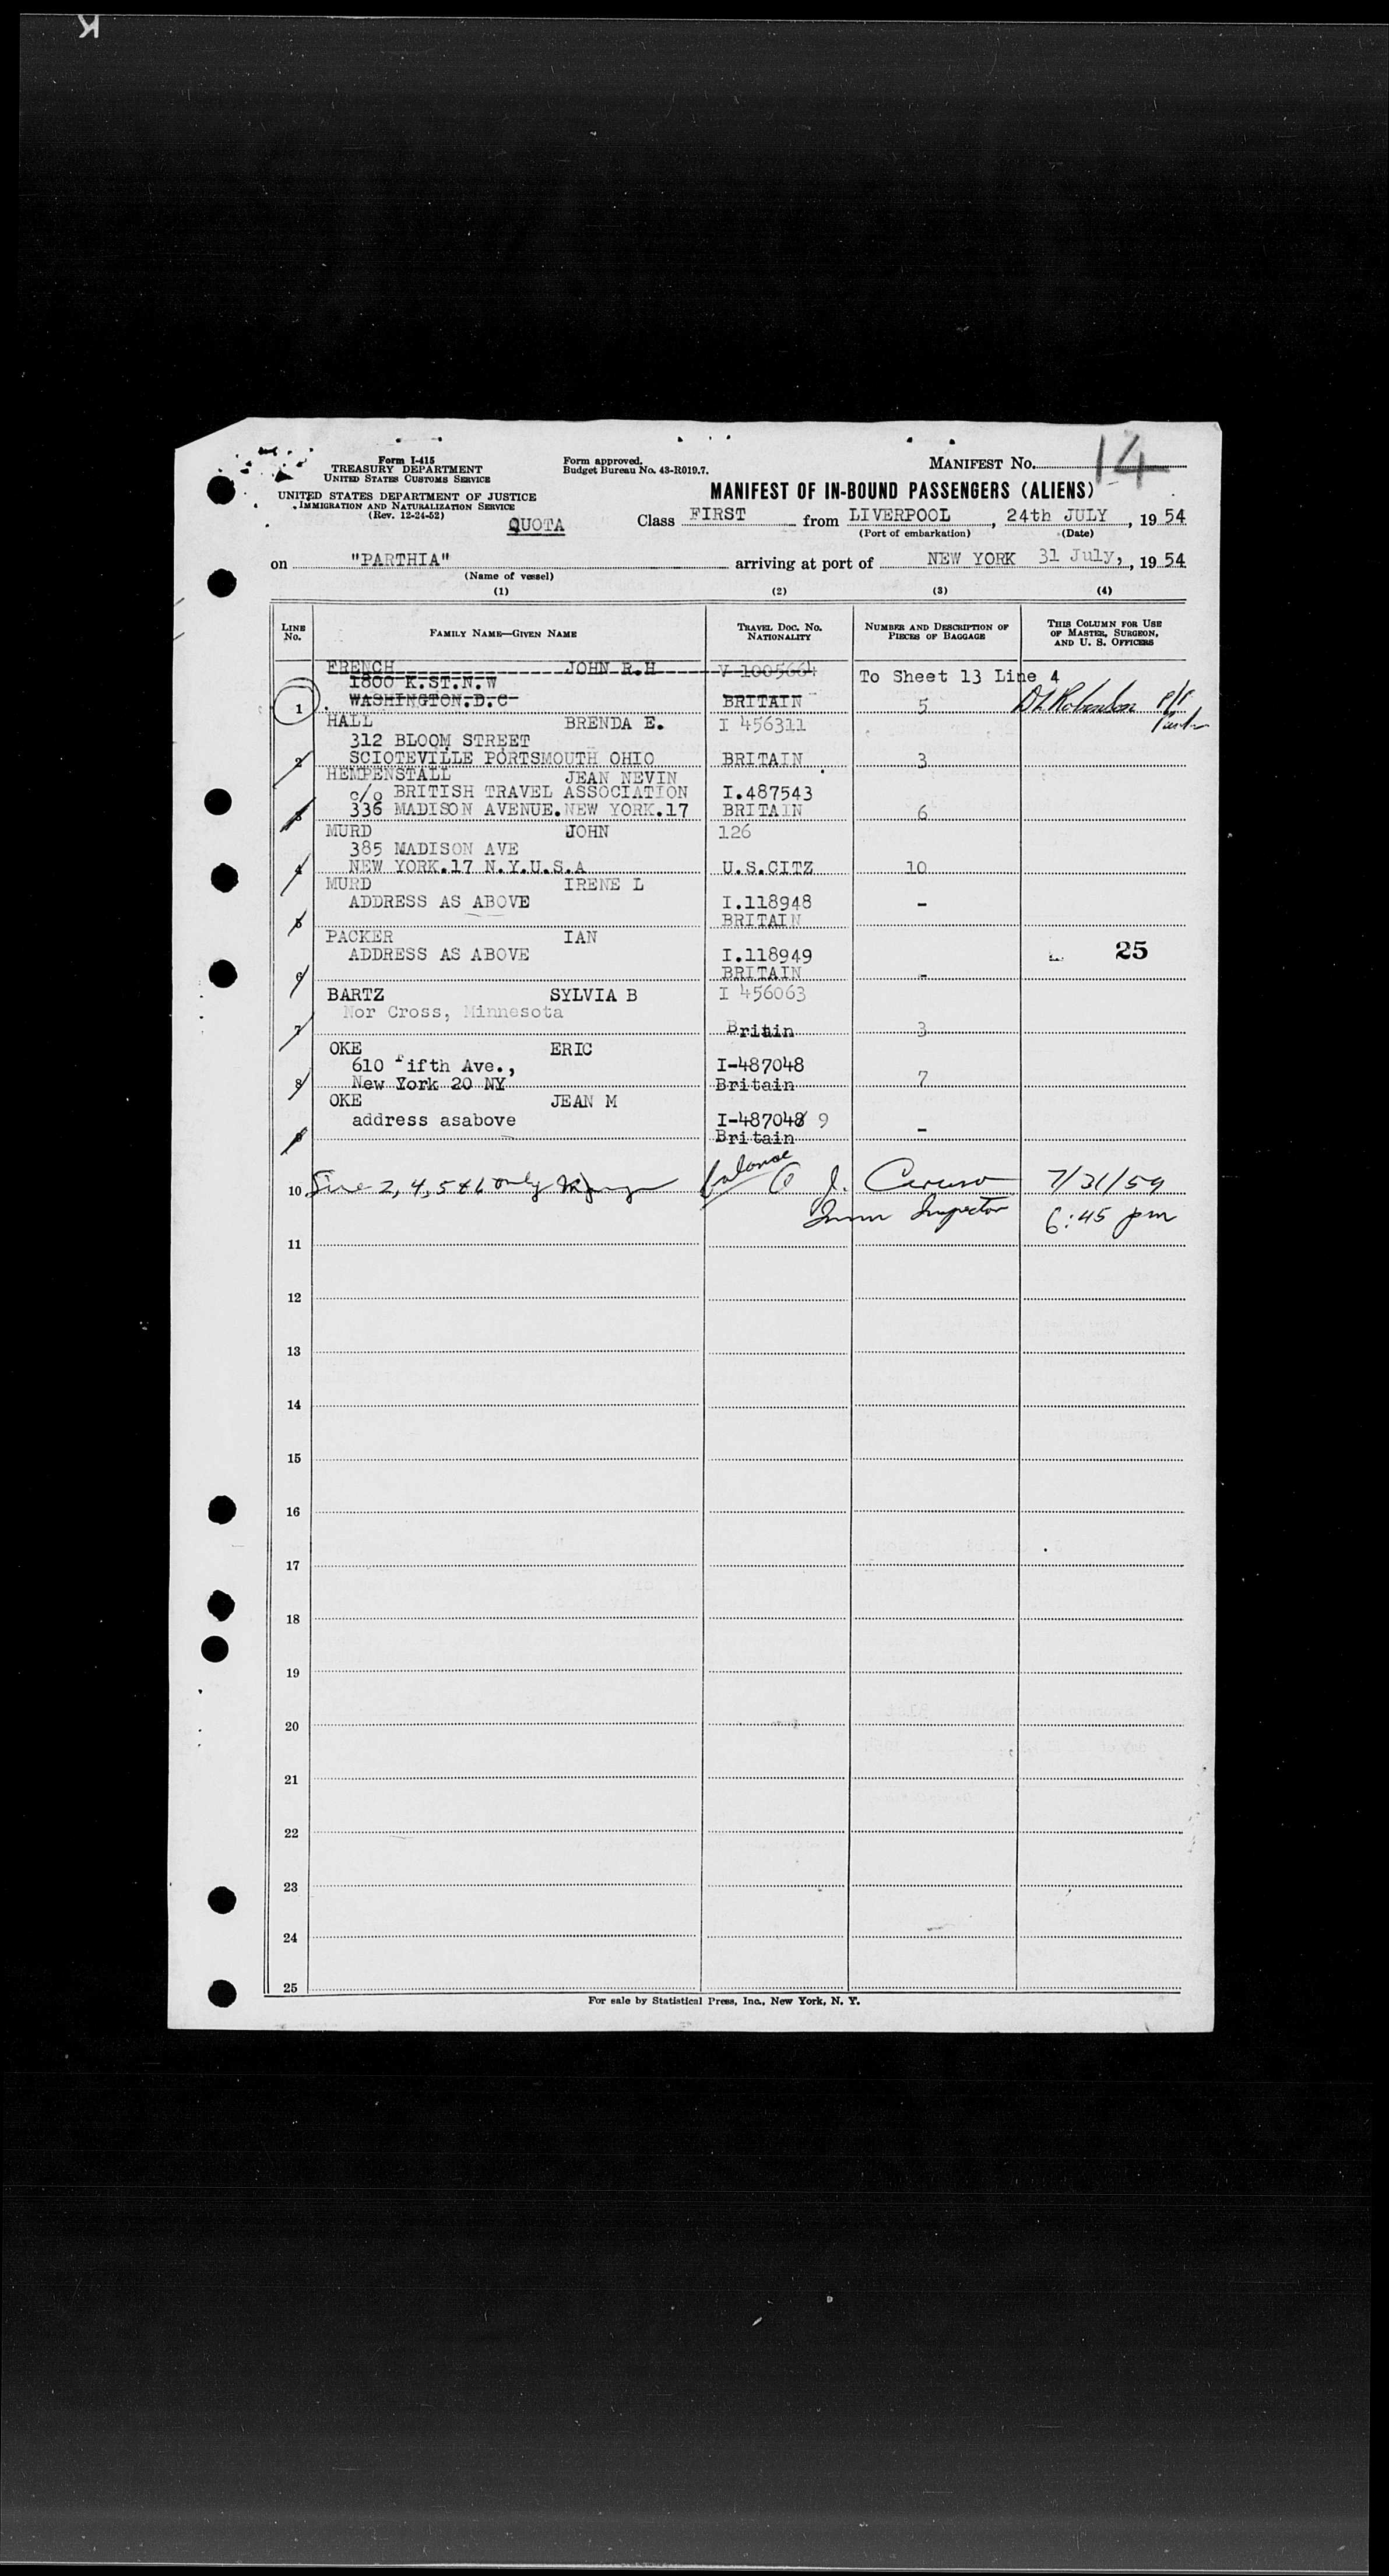 K
Form I-415
TREASURY DEPARTMENT
UNITED STATES CUSTOMS SERVICE
UNITED STATES DEPARTMENT OF JUSTICE
IMMIGRATION AND NATURALIZATION SERVICE
(Rev. 12-24-52)
Form approved.
Budget Bureau No. 43-R019.7.
MANIFEST No. 14
MANIFEST OF IN-BOUND PASSENGERS (ALIENS)
QUOTA Class FIRST from LIVERPOOL, 24th JULY, 19 54
(Port of embarkation) (Date)
on "PARTHIA" arriving at port of NEW YORK 31 July, , 19 54
(Name of vessel)
(1) (2) (3) (4)
LINE No. FAMILY NAME—GIVEN NAME TRAVEL DOC. No. NATIONALITY NUMBER AND DESCRIPTION OF PIECES OF BAGGAGE THIS COLUMN FOR USE OF MASTER, SURGEON, AND U. S. OFFICERS
FRENCH JOHN R.H V 1005664 To Sheet 13 Line 4
1800 K.ST.N.W
1 WASHINGTON.D.C BRITAIN 5
HALL BRENDA E. I 456311
312 BLOOM STREET
2 SCIOTEVILLE PORTSMOUTH OHIO BRITAIN 3
HEMPENSTALL JEAN NEVIN
c/o BRITISH TRAVEL ASSOCIATION I.487543
3 336 MADISON AVENUE.NEW YORK.17 BRITAIN 6
MURD JOHN 126
385 MADISON AVE
4 NEW YORK.17 N.Y.U.S.A U.S.CITZ 10
MURD IRENE L
ADDRESS AS ABOVE I.118948 -
5 BRITAIN
PACKER IAN
ADDRESS AS ABOVE I.118949 25
6 BRITAIN -
BARTZ SYLVIA B I 456063
Nor Cross, Minnesota
7 Britain 3
OKE ERIC
610 Fifth Ave., I-487048
8 New York 20 NY Britain 7
OKE JEAN M
address asabove I-487048 9
9 Britain -
10 Line 2, 4, 5 & 6 only balance J. Caruso 7/31/54
Imm Inspector 6:45 pm
11
12
13
14
15
16
17
18
19
20
21
22
23
24
25
For sale by Statistical Press, Inc., New York, N. Y.